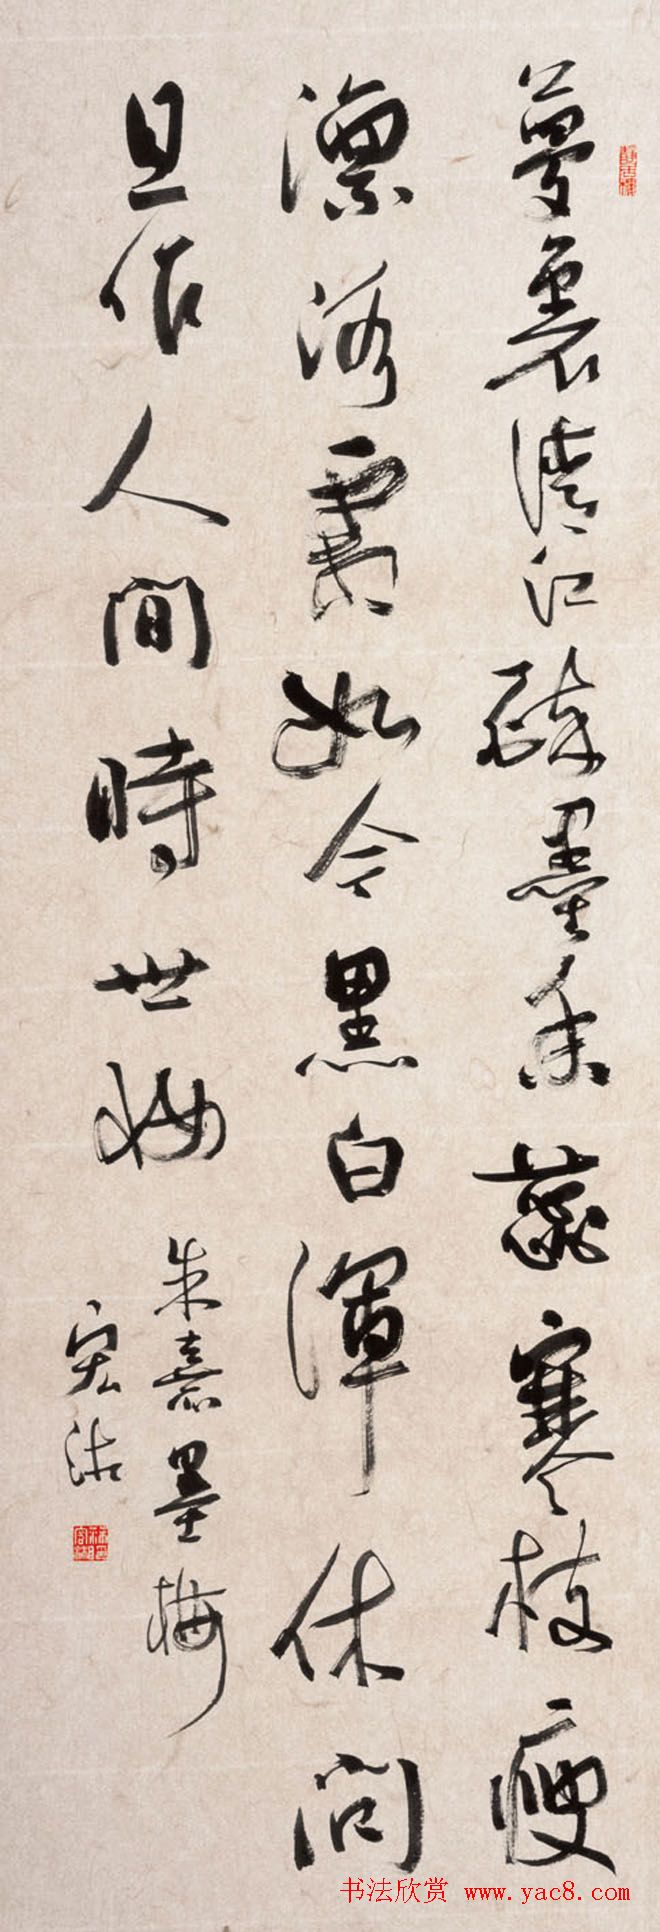 夢裏清江醉墨香蕊寒枝瘦
凛冰霜如今黑白渾休問
且作人間時世妝
朱熹墨梅
书法欣赏 www.yac8.com